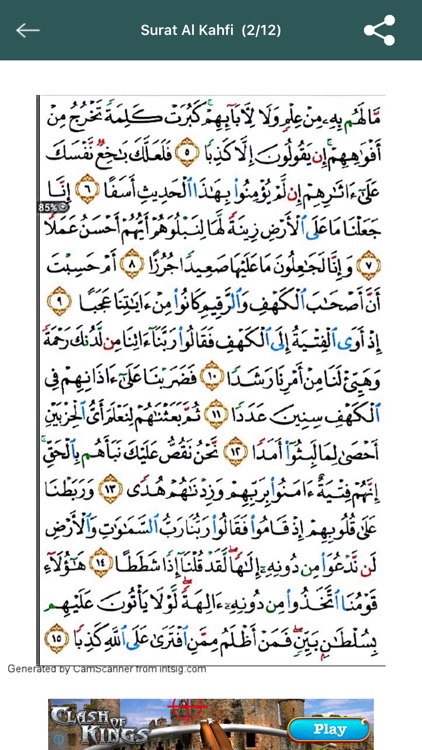 Surat Al Kahfi (2/12)
مَّا لَهُم بِهِۦ مِنْ عِلْمٍ وَلَا لِأَبَآئِهِمْ كَبُرَتْ كَلِمَةً تَخْرُجُ مِنْ
أَفْوَٰهِهِمْ إِن يَقُولُونَ إِلَّا كَذِبًا ٥ فَلَعَلَّكَ بَٰخِعٌ نَّفْسَكَ
عَلَىٰٓ ءَاثَٰرِهِمْ إِن لَّمْ يُؤْمِنُوا۟ بِهَٰذَا ٱلْحَدِيثِ أَسَفًا ٦ إِنَّا
85%
جَعَلْنَا مَا عَلَى ٱلْأَرْضِ زِينَةً لَّهَا لِنَبْلُوَهُمْ أَيُّهُمْ أَحْسَنُ عَمَلًا
٧ وَإِنَّا لَجَٰعِلُونَ مَا عَلَيْهَا صَعِيدًا جُرُزًا ٨ أَمْ حَسِبْتَ
أَنَّ أَصْحَٰبَ ٱلْكَهْفِ وَٱلرَّقِيمِ كَانُوا۟ مِنْ ءَايَٰتِنَا عَجَبًا ٩
إِذْ أَوَى ٱلْفِتْيَةُ إِلَى ٱلْكَهْفِ فَقَالُوا۟ رَبَّنَآ ءَاتِنَا مِن لَّدُنكَ رَحْمَةً
وَهَيِّئْ لَنَا مِنْ أَمْرِنَا رَشَدًا ١٠ فَضَرَبْنَا عَلَىٰٓ ءَاذَانِهِمْ فِى
ٱلْكَهْفِ سِنِينَ عَدَدًا ١١ ثُمَّ بَعَثْنَٰهُمْ لِنَعْلَمَ أَىُّ ٱلْحِزْبَيْنِ
أَحْصَىٰ لِمَا لَبِثُوٓا۟ أَمَدًا ١٢ نَّحْنُ نَقُصُّ عَلَيْكَ نَبَأَهُم بِٱلْحَقِّ
إِنَّهُمْ فِتْيَةٌ ءَامَنُوا۟ بِرَبِّهِمْ وَزِدْنَٰهُمْ هُدًى ١٣ وَرَبَطْنَا
عَلَىٰ قُلُوبِهِمْ إِذْ قَامُوا۟ فَقَالُوا۟ رَبُّنَا رَبُّ ٱلسَّمَٰوَٰتِ وَٱلْأَرْضِ
لَن نَّدْعُوَا۟ مِن دُونِهِۦٓ إِلَٰهًا لَّقَدْ قُلْنَآ إِذًا شَطَطًا ١٤ هَٰٓؤُلَآءِ
قَوْمُنَا ٱتَّخَذُوا۟ مِن دُونِهِۦٓ ءَالِهَةً لَّوْلَا يَأْتُونَ عَلَيْهِم
بِسُلْطَٰنٍۭ بَيِّنٍ فَمَنْ أَظْلَمُ مِمَّنِ ٱفْتَرَىٰ عَلَى ٱللَّهِ كَذِبًا ١٥
Generated by CamScanner from intsig.com
CLASH OF
KINGS
Play